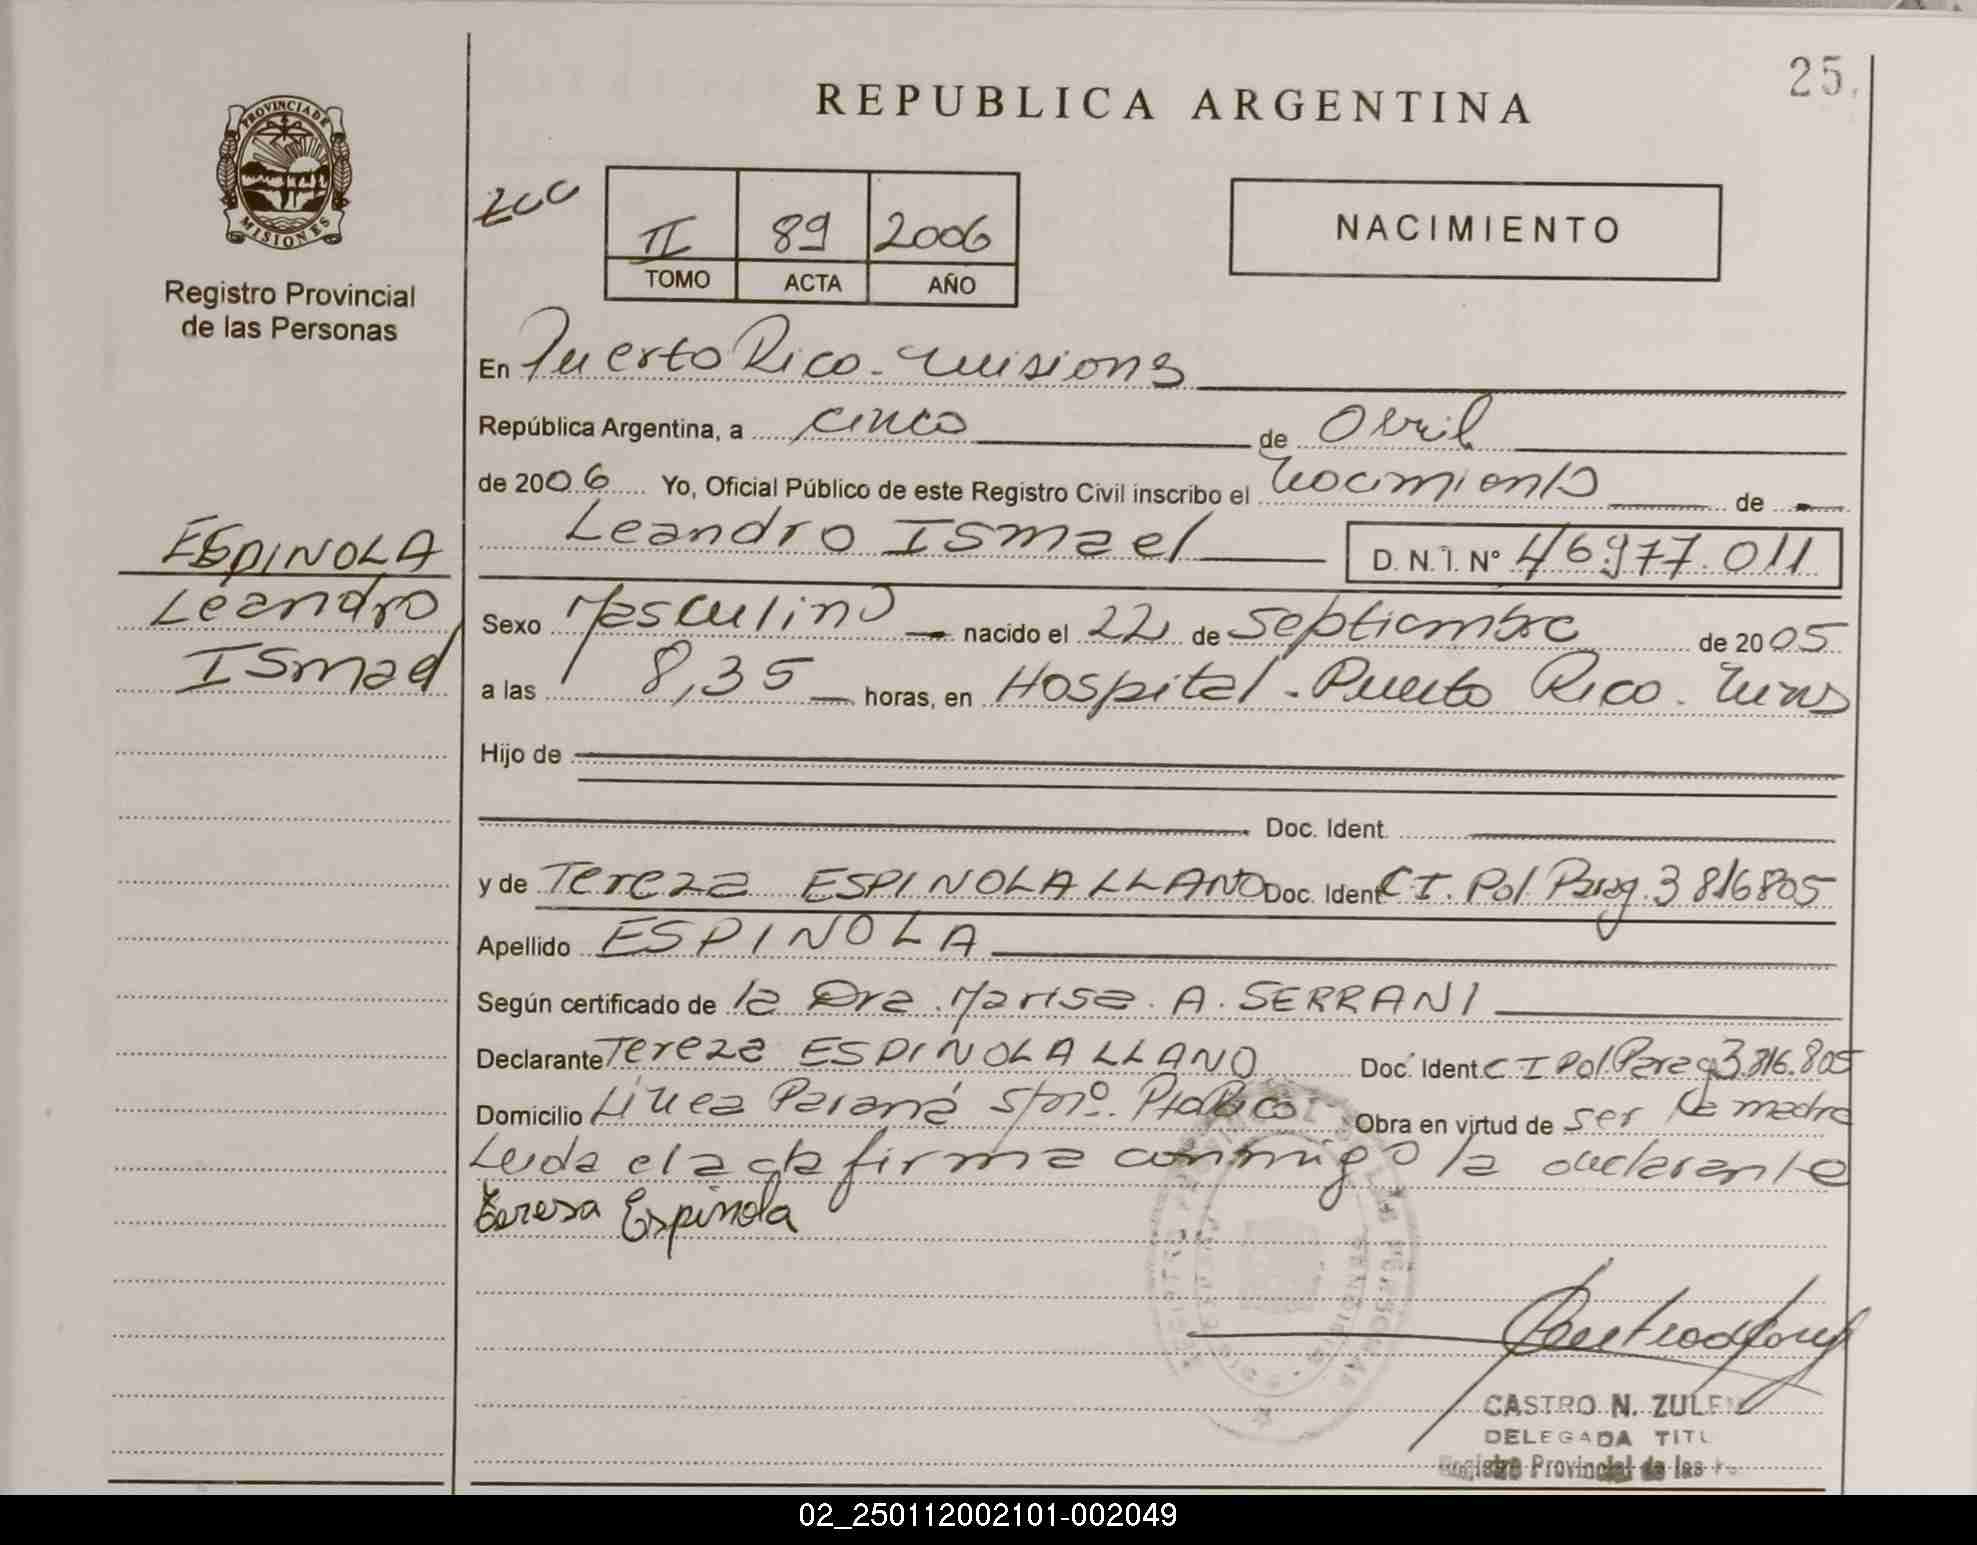 25.
REPUBLICA ARGENTINA
PROVINCIA DE
MISIONES
Registro Provincial
de las Personas
II 89 2006
TOMO ACTA AÑO
NACIMIENTO
En Puerto Rico - Misiones
República Argentina, a cinco de Abril
de 2006 Yo, Oficial Público de este Registro Civil inscribo el Nacimiento de
Leandro Ismael D.N.I. Nº 46977.011
ESPINOLA
Leandro
Ismael
Sexo Masculino nacido el 22 de Septiembre de 2005
a las 8,35 horas, en Hospital - Puerto Rico - Mnes
Hijo de
Doc. Ident.
y de Tereza ESPINOLA LLANO Doc. Ident C.I. Pol Parag. 3816805
Apellido ESPINOLA
Según certificado de la Dra. Marisa A. SERRANI
Declarante Tereza ESPINOLA LLANO Doc. Ident C I Pol Parag 3.816.805
Domicilio Línea Paraná s/nº. Pto Rico Obra en virtud de ser la madre
Leida el acta firma conmigo la declarante
Teresa Espinola
CASTRO N. ZULE
DELEGADA TITU
Registro Provincial de las
02_250112002101-002049